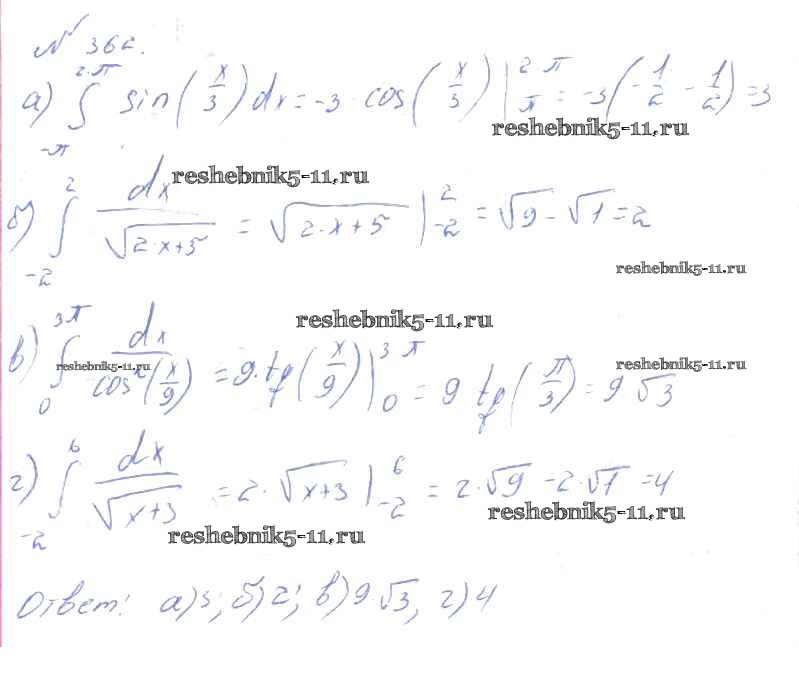 № 362.
а) ∫_{-π}^{2·π} sin(x/3) dx = -3 · cos(x/3) |_{π}^{2π} = -3(-1/2 - 1/2) = 3
reshebnik5-11.ru
reshebnik5-11.ru
б) ∫_{-2}^{2} dx/√(2·x+5) = √(2·x+5) |_{-2}^{2} = √9 - √1 = 2
reshebnik5-11.ru
reshebnik5-11.ru
в) ∫_{0}^{3π} dx/cos²(x/9) = 9·tg(x/9) |_{0}^{3π} = 9 tg(π/3) = 9√3
reshebnik5-11.ru
reshebnik5-11.ru
г) ∫_{-2}^{6} dx/√(x+3) = 2·√(x+3) |_{-2}^{6} = 2·√9 - 2·√1 = 4
reshebnik5-11.ru
reshebnik5-11.ru
Ответ: а) 3; б) 2; в) 9√3, г) 4